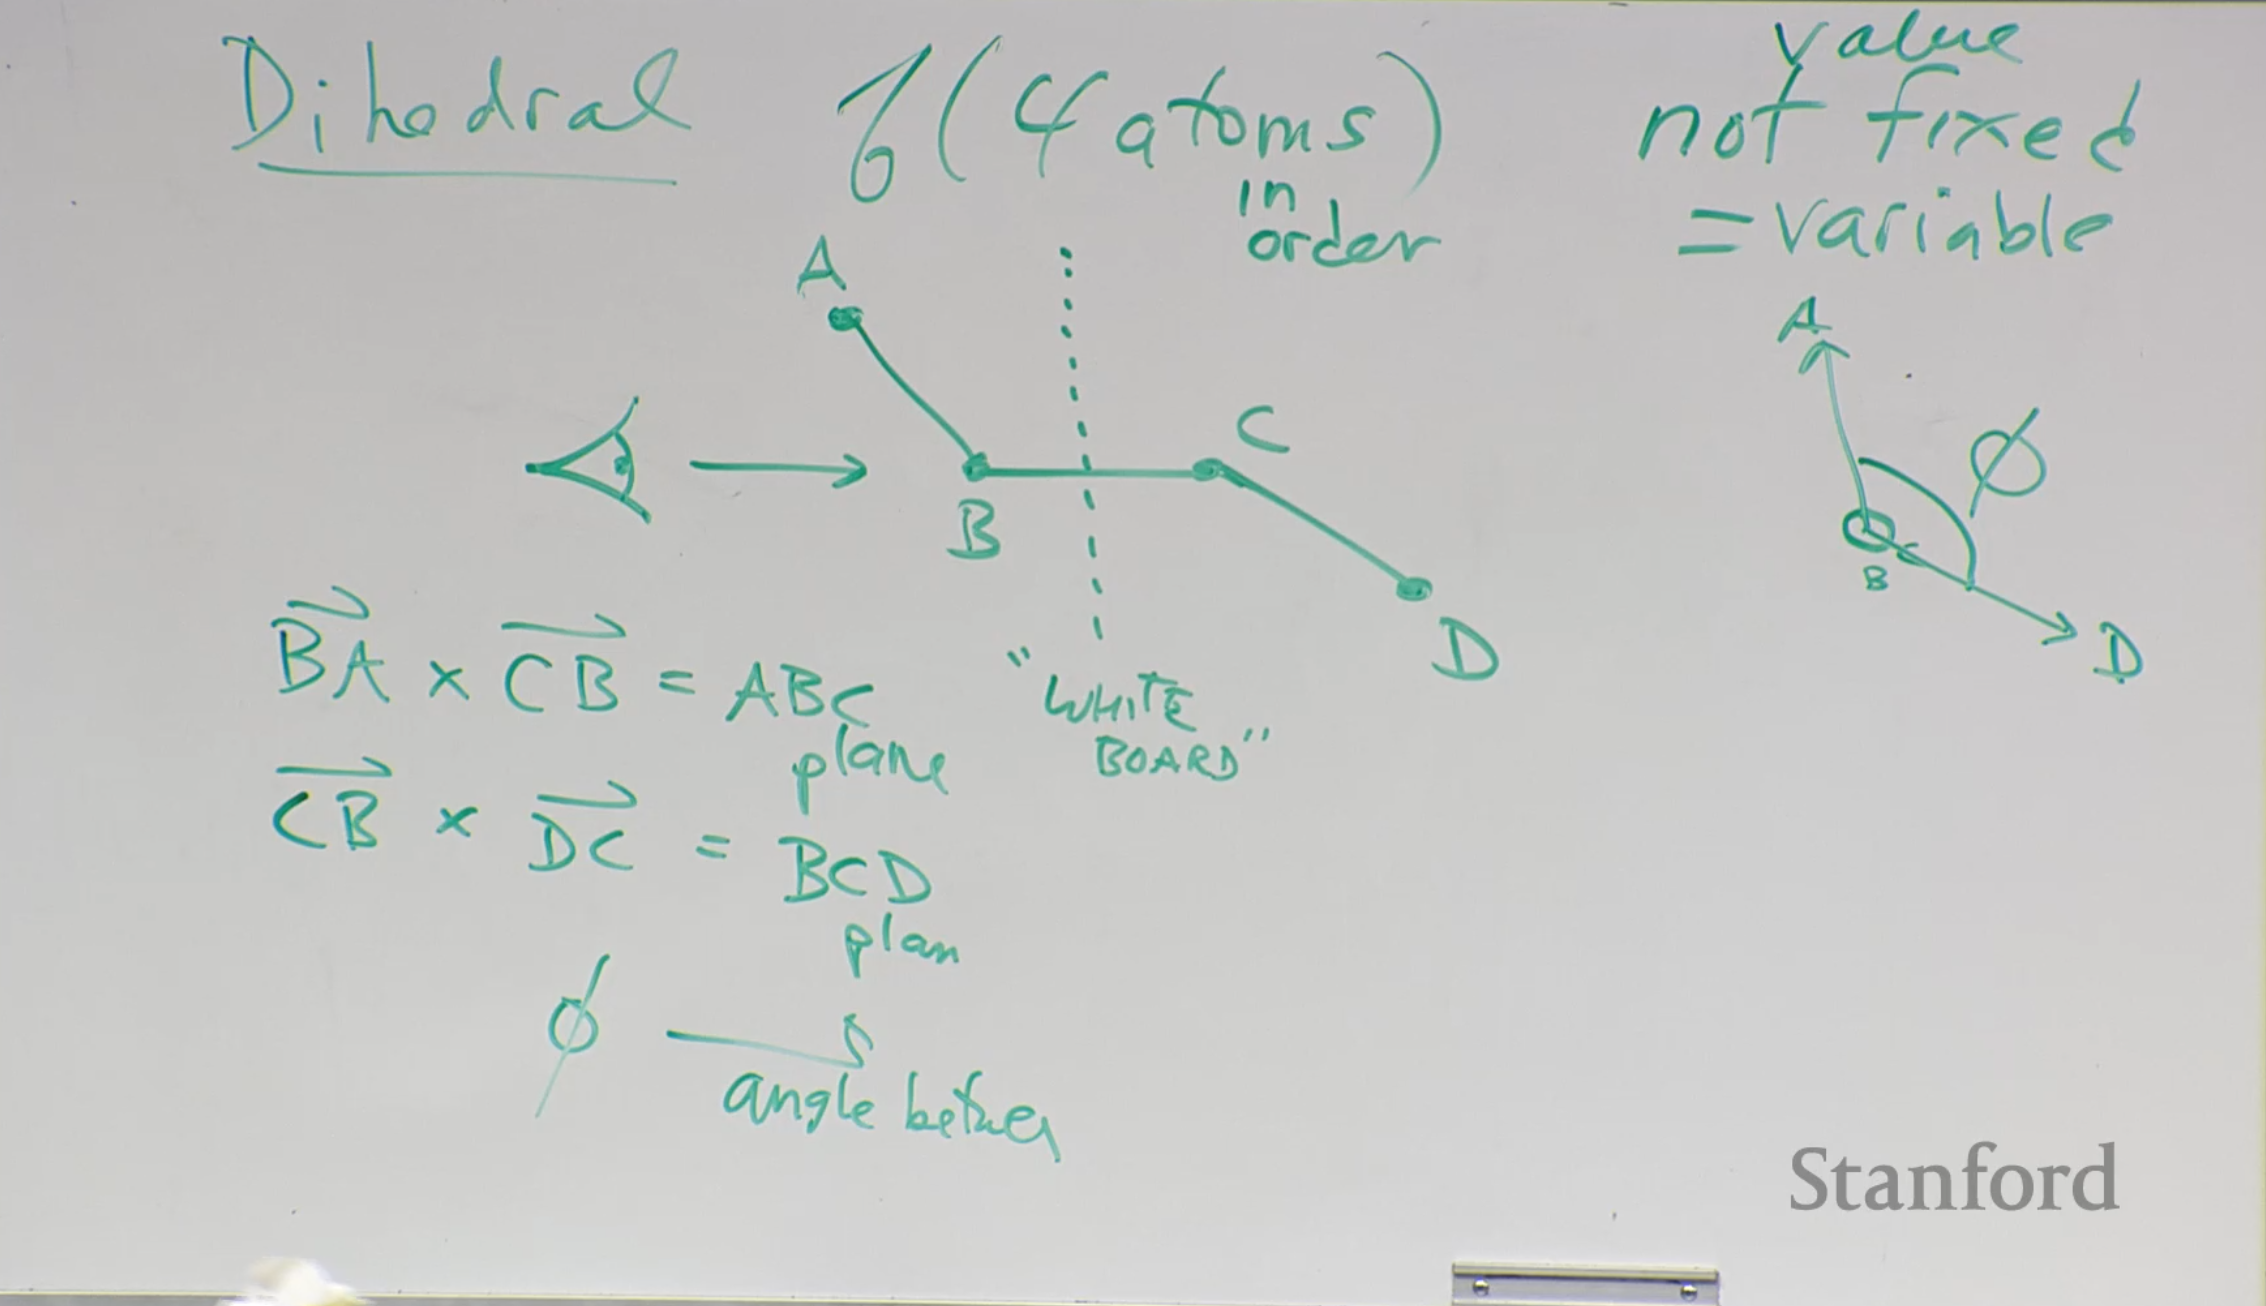 Dihedral ϕ (4 atoms)
in
order
value
not fixed
= variable
A
B
C
D
"WHITE
BOARD"
A
ϕ
B
C
D
BA × CB = ABC
plane
CB × DC = BCD
plan
ϕ
angle between
Stanford